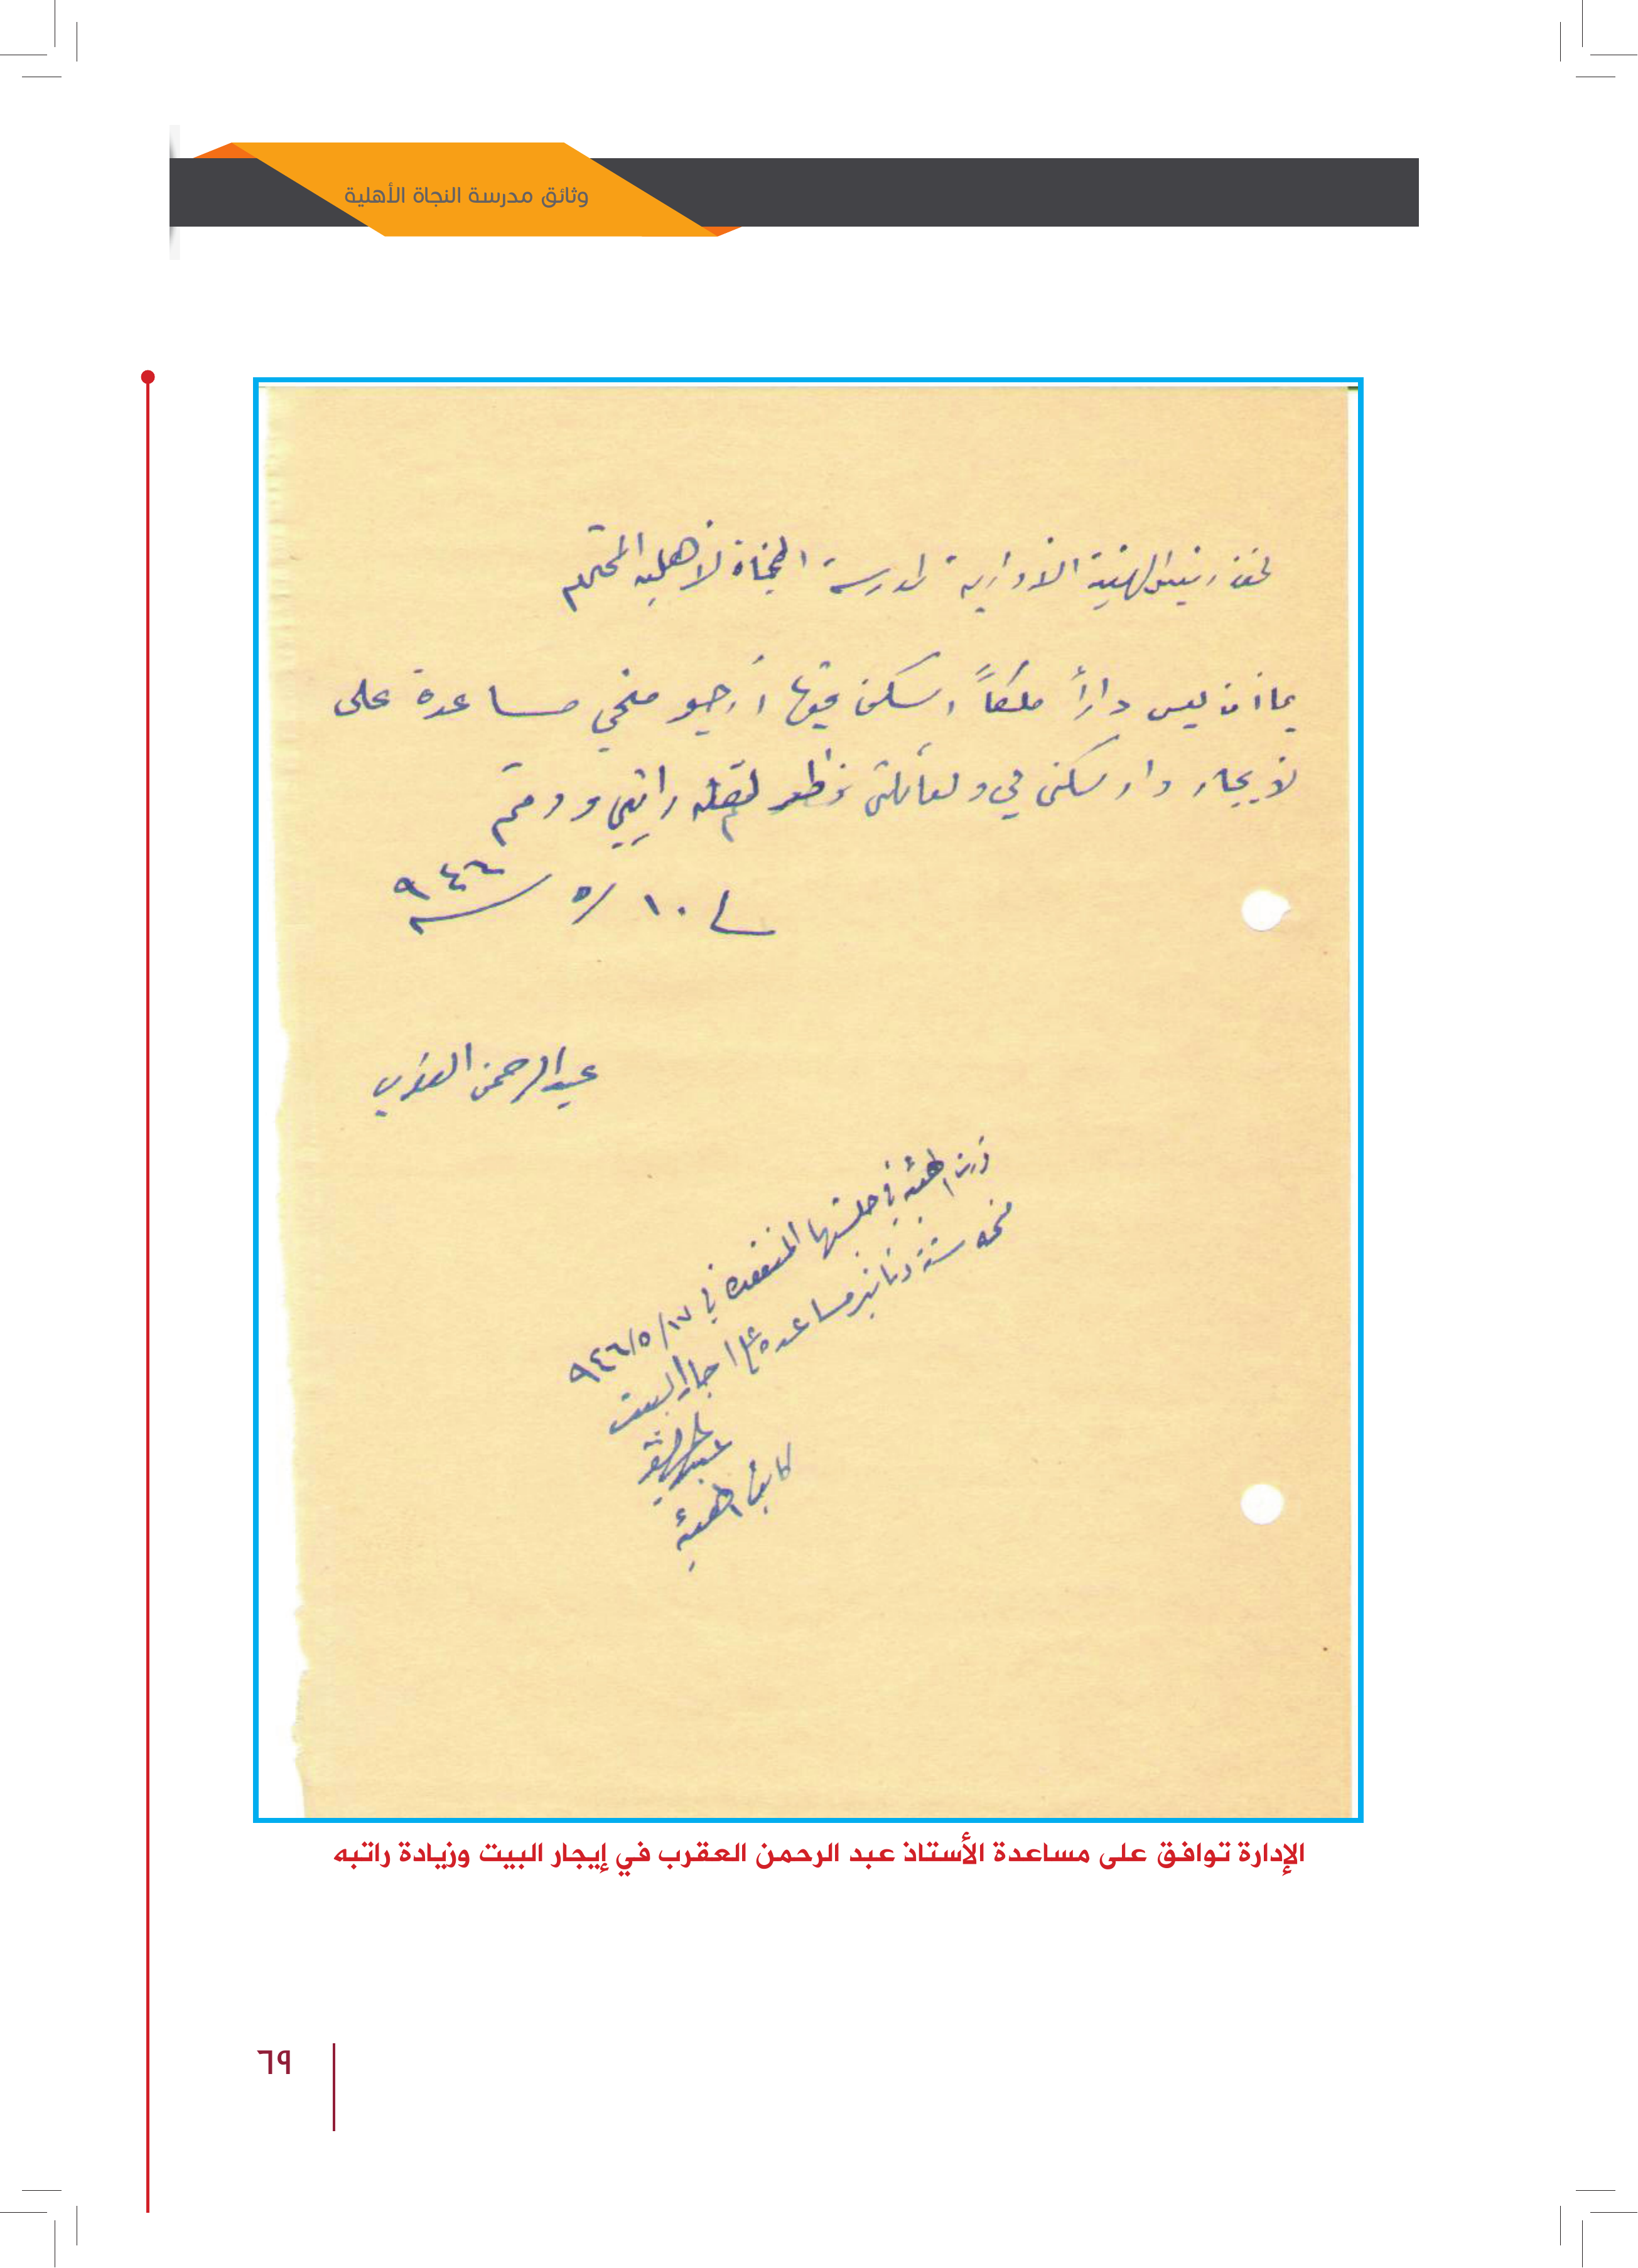 وثائق مدرسة النجاة الأهلية
رئيس الهيئة الادارية لمدرسة النجاة الاهلية المحترم
بما أن ليس داراً ملكاً اسكن فيها أرجو منحي مساعدة على
لايجار دار سكنى لي ولعائلتي نظر لقلة راتبي ودمتم
١٠/٥/٩٤٦
عبدالرحمن العقرب
قررت الهيئة في جلستها المنعقده في ٩٤٦/٥/١٧
منحه ستة دنانير مساعده على اجار البيت
كاتب الهيئة
الإدارة توافق على مساعدة الأستاذ عبد الرحمن العقرب في إيجار البيت وزيادة راتبه
٦٩